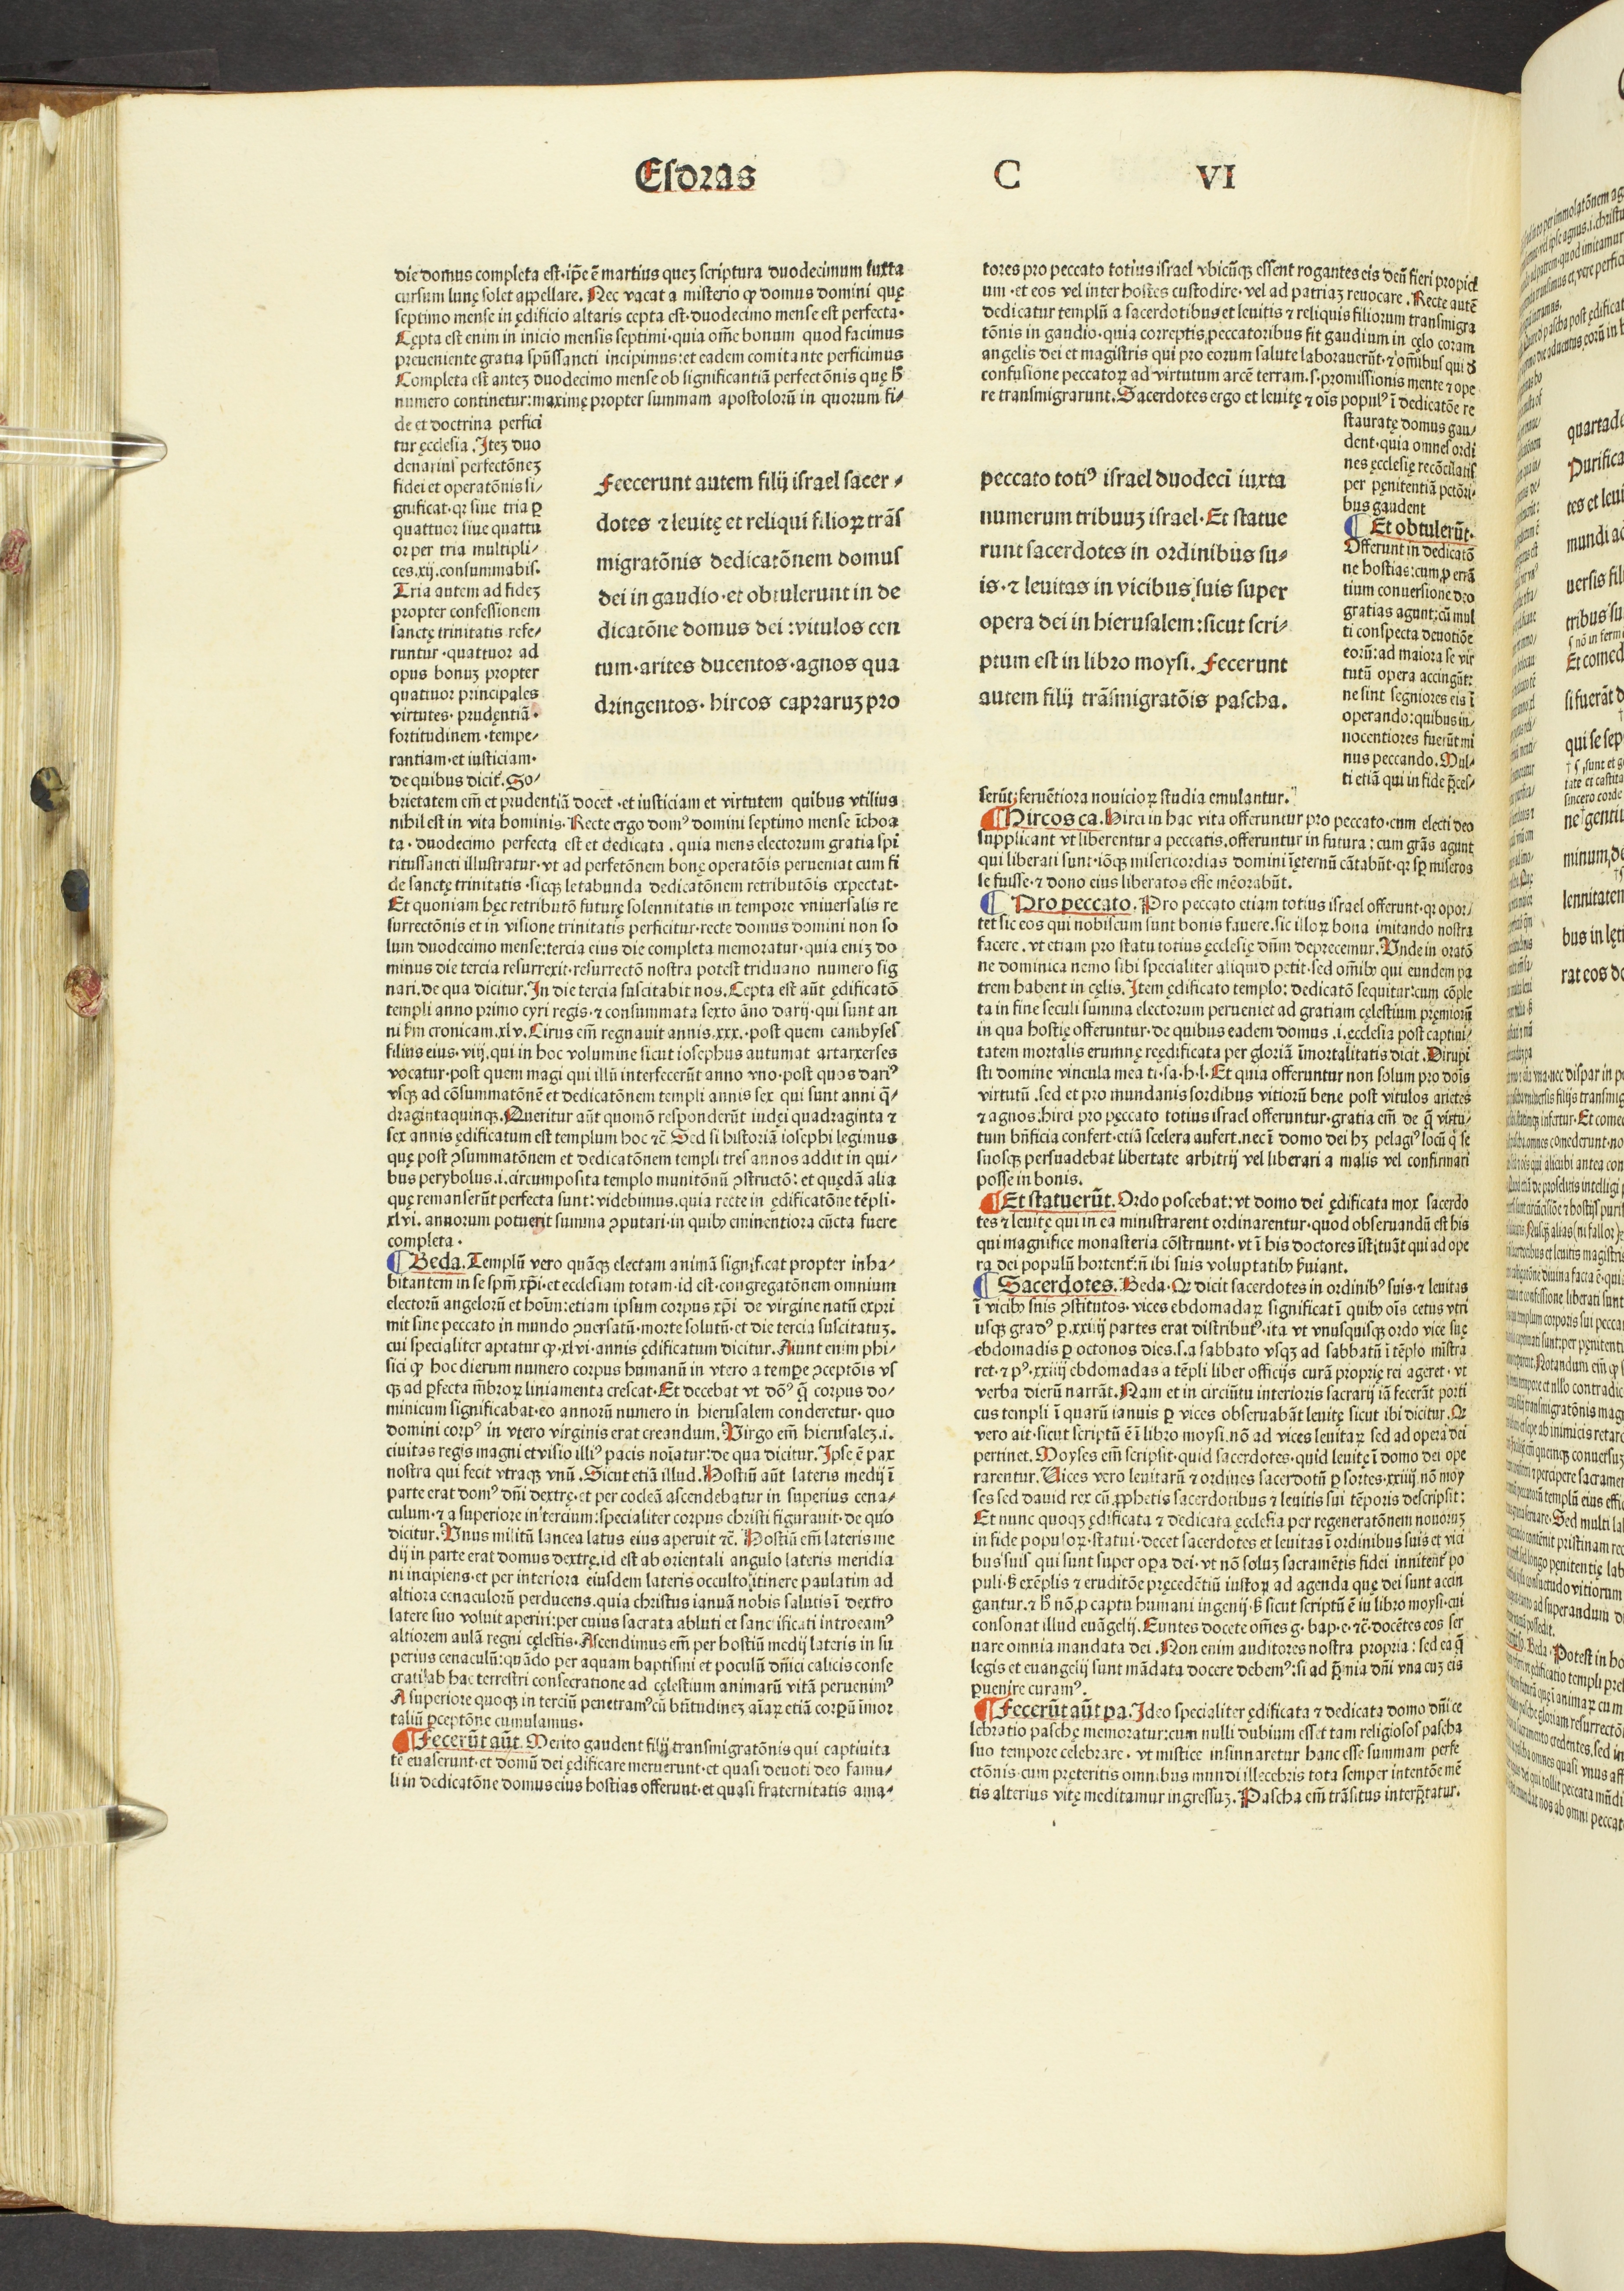 Esdras C VI
die domus completa est·ip̄e ē martius quez scriptura duodecimum iuxta
cursum lunę solet appellare. Nec vacat a misterio ꝙ domus domini quę
septimo mense in ędificio altaris cepta est·duodecimo mense est perfecta·
Cępta est enim in inicio mensis septimi·quia om̄e bonum quod facimus
preueniente gratia spūssancti incipimus:et eadem comitante perficimus
Completa est antez duodecimo mense ob significantiā perfectōnis quę h̄
numero continetur:maximę propter summam apostolorū in quorum fi⸗
de et doctrina perfici
tur ęcclesia. Itez duo
denarius perfectōnez
fidei et operatōnis si⸗
gnificat·qr siue tria ꝑ
quattuor siue quattu
or per tria multipli⸗
ces.xij.consummabis.
Tria autem ad fidez
propter confessionem
sanctę trinitatis refe⸗
runtur·quattuor ad
opus bonuz propter
quattuor principales
virtutes·prudentiā·
fortitudinem·tempe⸗
rantiam·et iusticiam·
de quibus dicit̄. So⸗
brietatem em̄ et prudentiā docet·et iusticiam et virtutem quibus vtilius
nihil est in vita hominis. Recte ergo domꝰ domini septimo mense īchoa
ta·duodecimo perfecta est et dedicata·quia mens electorum gratia spi
ritussancti illustratur·vt ad perfetōnem bonę operatōis perueniat cum fi
de sanctę trinitatis·sicqꝫ letabunda dedicatōnem retributōis expectat·
Et quoniam hęc retributō futurę solennitatis in tempore vniuersalis re
surrectōnis et in visione trinitatis perficitur·recte domus domini non so
lum duodecimo mense:tercia eius die completa memoratur·quia eniz do
minus die tercia resurrexit·resurrectō nostra potest triduano numero sig
nari.de qua dicitur. In die tercia suscitabit nos. Cepta est aūt ędificatō
templi anno primo cyri regis·⁊ consummata sexto āno darij·qui sunt an
ni ẜm cronicam.xlv. Cirus em̄ regnauit annis.xxx.·post quem cambyses
filius eius·viij.qui in hoc volumine sicut iosephus autumat artarxerses
vocatur·post quem magi qui illū interfecerūt anno vno·post quos dariꝰ
vsqꝫ ad cōsummatōnē et dedicatōnem templi annis sex qui sunt anni q̄⸗
dragintaquinqꝫ. Queritur aūt quomō responderūt iudęi quadraginta ⁊
sex annis ędificatum est templum hoc ⁊c̄ Sed si historiā iosephi legimus
quę post ꝯsummatōnem et dedicatōnem templi tres annos addit in qui⸗
bus perybolus.i.circumposita templo munitōnū ꝯstructō: et quędā alia
quę remanserūt perfecta sunt: videbimus.quia recte in ędificatōne tēpli·
xlvi. annorum potuerit summa ꝯputari·in quibꝫ eminentiora cūcta fuere
completa·
¶ Beda. Templū vero quāqꝫ electam animā significat propter inha⸗
bitantem in se spm̄ xp̄i·et ecclesiam totam·id est·congregatōnem omnium
electorū angelorū et hoīm:etiam ipsum corpus xp̄i de virgine natū expri
mit sine peccato in mundo ꝯuersatū·morte solutū·et die tercia suscitatuz.
cui specialiter aptatur ꝙ·xlvi·annis ędificatum dicitur. Aiunt enim phi⸗
sici ꝙ hoc dierum numero corpus humanū in vtero a tempꝫe ꝯceptōis vs
qꝫ ad ꝑfecta m̄broꝝ liniamenta crescat·Et decebat vt dōꝰ q̄ corpus do⸗
minicum significabat·eo annorū numero in hierusalem conderetur·quo
domini corpꝰ in vtero virginis erat creandum. Virgo em̄ hierusalez.i.
ciuitas regis magni et visio illiꝰ pacis noīatur:de qua dicitur. Ipse ē pax
nostra qui fecit vtraqꝫ vnū. Sicut etiā illud. Hostiū aūt lateris medij ī
parte erat domꝰ dn̄i dextrę·et per cocleā ascendebatur in superius cena⸗
culum·⁊ a superiore in tercium:specialiter corpus christi figurauit·de quo
dicitur. Unus militū lancea latus eius aperuit ⁊c̄. Hostiū em̄ lateris me
dij in parte erat domus dextrę.id est ab orientali angulo lateris meridia
ni incipiens·et per interiora eiusdem lateris occulto itinere paulatim ad
altiora cenaculorū perducens.quia christus ianuā nobis salutis ī dextro
latere suo voluit aperiri:per cuius sacrata abluti et sanctificati introeamꝰ
altiorem aulā regni cęlestis·Ascendimus em̄ per hostiū medij lateris in su
perius cenaculū:quādo per aquam baptismi et poculū dn̄ici calicis conse
crati ab hac terrestri consecratione ad cęlestium animarū vitā peruenimꝰ
A superiore quoqꝫ in terciū penetramꝰ cū btītudinez aīaꝝ etiā corpꝝū īmor
taliū ꝑceptōne cumulamus·
¶ Fecerūt aūt. Merito gaudent filij transmigratōnis qui captiuita
tē euaserunt·et domū dei ędificare meruerunt·et quasi deuoti deo famu⸗
li in dedicatōne domus eius hostias offerunt·et quasi fraternitatis ama⸗
Feecerunt autem filij israel sacer⸗
dotes ⁊ leuitę et reliqui filioꝝ trās
migratōnis dedicatōnem domus
dei in gaudio·et obtulerunt in de
dicatōne domus dei:vitulos cen
tum·arites ducentos·agnos qua
dringentos·hircos capraruz pro
peccato totiꝰ israel duodeci iuxta
numerum tribuuz israel·Et statue
runt sacerdotes in ordinibus su⸗
is·⁊ leuitas in vicibus suis super
opera dei in hierusalem:sicut scri⸗
ptum est in libro moysi. Fecerunt
autem filij trāsmigratōis pascha.
tores pro peccato totius israel vbicūqꝫ essent rogantes eis deū fieri propici
um·et eos vel inter hostes custodire·vel ad patriaz reuocare. Recte autē
dedicatur templū a sacerdotibus et leuitis ⁊ reliquis filiorum transmigra
tōnis in gaudio·quia correptis peccatoribus fit gaudium in cęlo coram
angelis dei et magistris qui pro eorum salute laborauerūt·⁊ om̄ibus qui d̄
confusione peccatoꝝ ad virtutum arcē terram.s.promissionis mente ⁊ ope
re transmigrarunt. Sacerdotes ergo et leuitę ⁊ oīs populꝰ ī dedicatōe re
stauratę domus gau⸗
dent·quia omnes ordi
nes ęcclesię recōciliatis
per pęnitentiā pctōri⸗
bus gaudent
¶ Et obtulerūt.
Offerunt in dedicatō
ne hostias:cum ꝑ errā
tium conuersione deo
gratias agunt:cū mul
ti conspecta deuotiōe
eorū:ad maiora se vir
tutū opera accingūt:
ne sint segniores eis ī
operando:quibus in⸗
nocentiores fuerūt mi
nus peccando. Mul⸗
ti etiā qui in fide p̄ces⸗
serūt:feruētiora nouicioꝝ studia emulantur.
¶ Hircos ca. Hirci in hac vita offeruntur pro peccato·cum electi deo
supplicant vt liberentur a peccatis.offeruntur in futura: cum grās agunt
qui liberati sunt·iōqꝫ misericordias domini ī ęternū cātabūt·qr sp̄ miseros
se fuisse·⁊ dono eius liberatos esse mēorabūt.
¶ Pro peccato. Pro peccato etiam totius israel offerunt·qr opor⸗
tet sic eos qui nobiscum sunt bonis fauere.sic illoꝝ bona imitando nostra
facere. vt etiam pro statu totius ęcclesię dn̄m deprecemur. Unde in oratō
ne dominica nemo sibi specialiter aliquid petit·sed om̄ibꝫ qui eundem pa
trem habent in cęlis. Item ędificato templo: dedicatō sequitur:cum cōple
ta in fine seculi summa electorum perueniet ad gratiam cęlestium pręmiorū
in qua hostię offeruntur·de quibus eadem domus .i.ecclesia post captiui⸗
tatem mortalis erumnę reędificata per gloriā īmortalitatis dicit. Dirupi
sti domine vincula mea ti·sa·h·l·Et quia offeruntur non solum pro dōis
virtutū .sed et pro mundanis sordibus vitiorū bene post vitulos arietes
⁊ agnos·hirci pro peccato totius israel offeruntur·gratia em̄ de q̄ virtu⸗
tum bn̄ficia confert·etiā scelera aufert.nec ī domo dei hꝫ pelagiꝰ locū q se
suosqꝫ persuadebat libertate arbitrij vel liberari a malis vel confirmari
posse in bonis.
¶ Et statuerūt. Ordo poscebat: vt domo dei ędificata mox sacerdo
tes ⁊ leuitę qui in ea ministrarent ordinarentur·quod obseruandū est his
qui magnifice monasteria cōstruunt·vt ī his doctores īstituāt qui ad ope
ra dei populū hortent̄:n̄ ibi suis voluptatibꝫ ẜuiant.
¶ Sacerdotes. Beda·Qꝫ dicit sacerdotes in ordinibꝰ suis·⁊ leuitas
ī vicibꝫ suis ꝯstitutos·vices ebdomadaꝝ significat ī quibꝫ oīs cetus vtri
usqꝫ gradꝰ ꝑ.xxiiij partes erat distributꝰ·ita vt vnusquisqꝫ ordo vice suę
ebdomadis ꝑ octonos dies.s.a sabbato vsqꝫ ad sabbatū ī tēplo mīstra
ret·⁊ pꝰ·xxiiij ebdomadas a tēpli liber officijs curā proprię rei ageret·vt
verba dierū narrāt. Nam et in circūitu interioris sacrarij iā fecerāt porti
cus templi ī quarū ianuis ꝑ vices obseruabāt leuitę sicut ibi dicitur. Qꝫ
vero ait·sicut scriptū ē ī libro moysi.nō ad vices leuitaꝝ sed ad opera dei
pertinet. Moyses em̄ scripsit·quid sacerdotes·quid leuitę ī domo dei ope
rarentur. Uices vero leuitarū ⁊ ordines sacerdotū ꝑ sortes·xxiiij.nō moy
ses sed dauid rex cū ꝓphetis sacerdotibus ⁊ leuitis sui tēporis descripsit:
Et nunc quoqꝫ ędificata ⁊ dedicata ęcclesia per regeneratōnem nouoruz
in fide populoꝝ·statui·decet sacerdotes et leuitas ī ordinibus suis et vici
bus suis qui sunt super oꝑa dei·vt nō soluz sacramētis fidei innitent̄ po
puli·ẜ exēplis ⁊ eruditōe pręcedētiū iustoꝝ ad agenda quę dei sunt accin
gantur.⁊ h̄ nō ꝓ captu humani ingenij·ẜ sicut scriptū ē in libro moysi·cui
consonat illud euāgelij. Euntes docete om̄es g·bap·e·⁊c̄·docētes eos ser
uare omnia mandata dei. Non enim auditores nostra propria: sed ea q̄
legis et euangelij sunt mādata docere debemꝰ:si ad p̄mia dn̄i vna cuz eis
ꝑuenire curamꝰ.
¶ Fecerūt aūt pa. Ideo specialiter ędificata ⁊ dedicata domo dn̄i ce
lebratio paschę memoratur:cum nulli dubium esset tam religiosos pascha
suo tempore celebrare·vt mistice insinnaretur hanc esse summam perfe
ctōnis·cum pręteritis omnibus mundi illecebris tota semper intentōe mē
tis alterius vitę meditamur ingressuz. Pascha em̄ trāsitus interp̄tatur.
quartade
Purifica
tes et leui
mundi ad
uersis fili
tribus su
Et comed
si fuerāt d
qui se sep
ne gentiu
minum de
lennitaten
bus in lęti
rat eos do